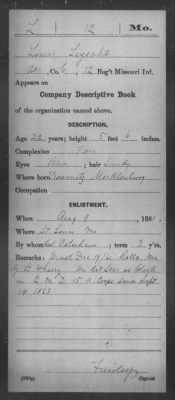 L 12 Mo.
Louis
Co. G, 12 Reg't Missouri Inf.
Appears on
Company Descriptive Book
of the organization named above.
DESCRIPTION.
Age 22 years; height 5 feet 6 inches.
Complexion Fair
Eyes Blue; hair Sandy
Where born Mecklenburg
Occupation
ENLISTMENT.
When Aug 9, 186 .
Where St. Louis Mo
By whom Col Osterhaus; term 3 y'rs.
Remarks: Must Dec 19/61 Rolla Mo
Clerk
in Q.M.D. 15 A Corps since Sept
19. 1863
Copyist.